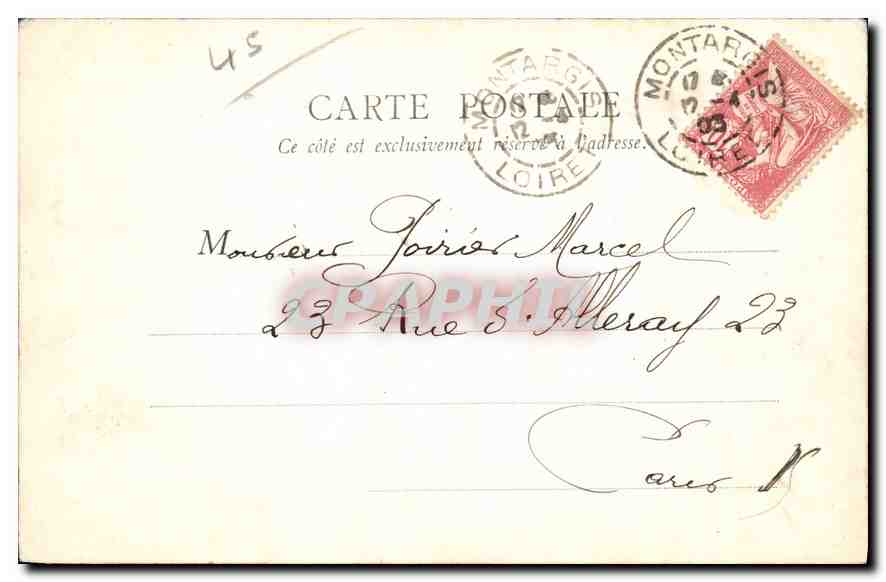 45
CARTE POSTALE
Ce côté est exclusivement réservé à l'adresse.
MONTARGIS
LOIRET
MONTARGIS
LOIRET
Monsieur Poirier Marcel
CPAPHIL
23 Rue d'Alleray 23
Paris